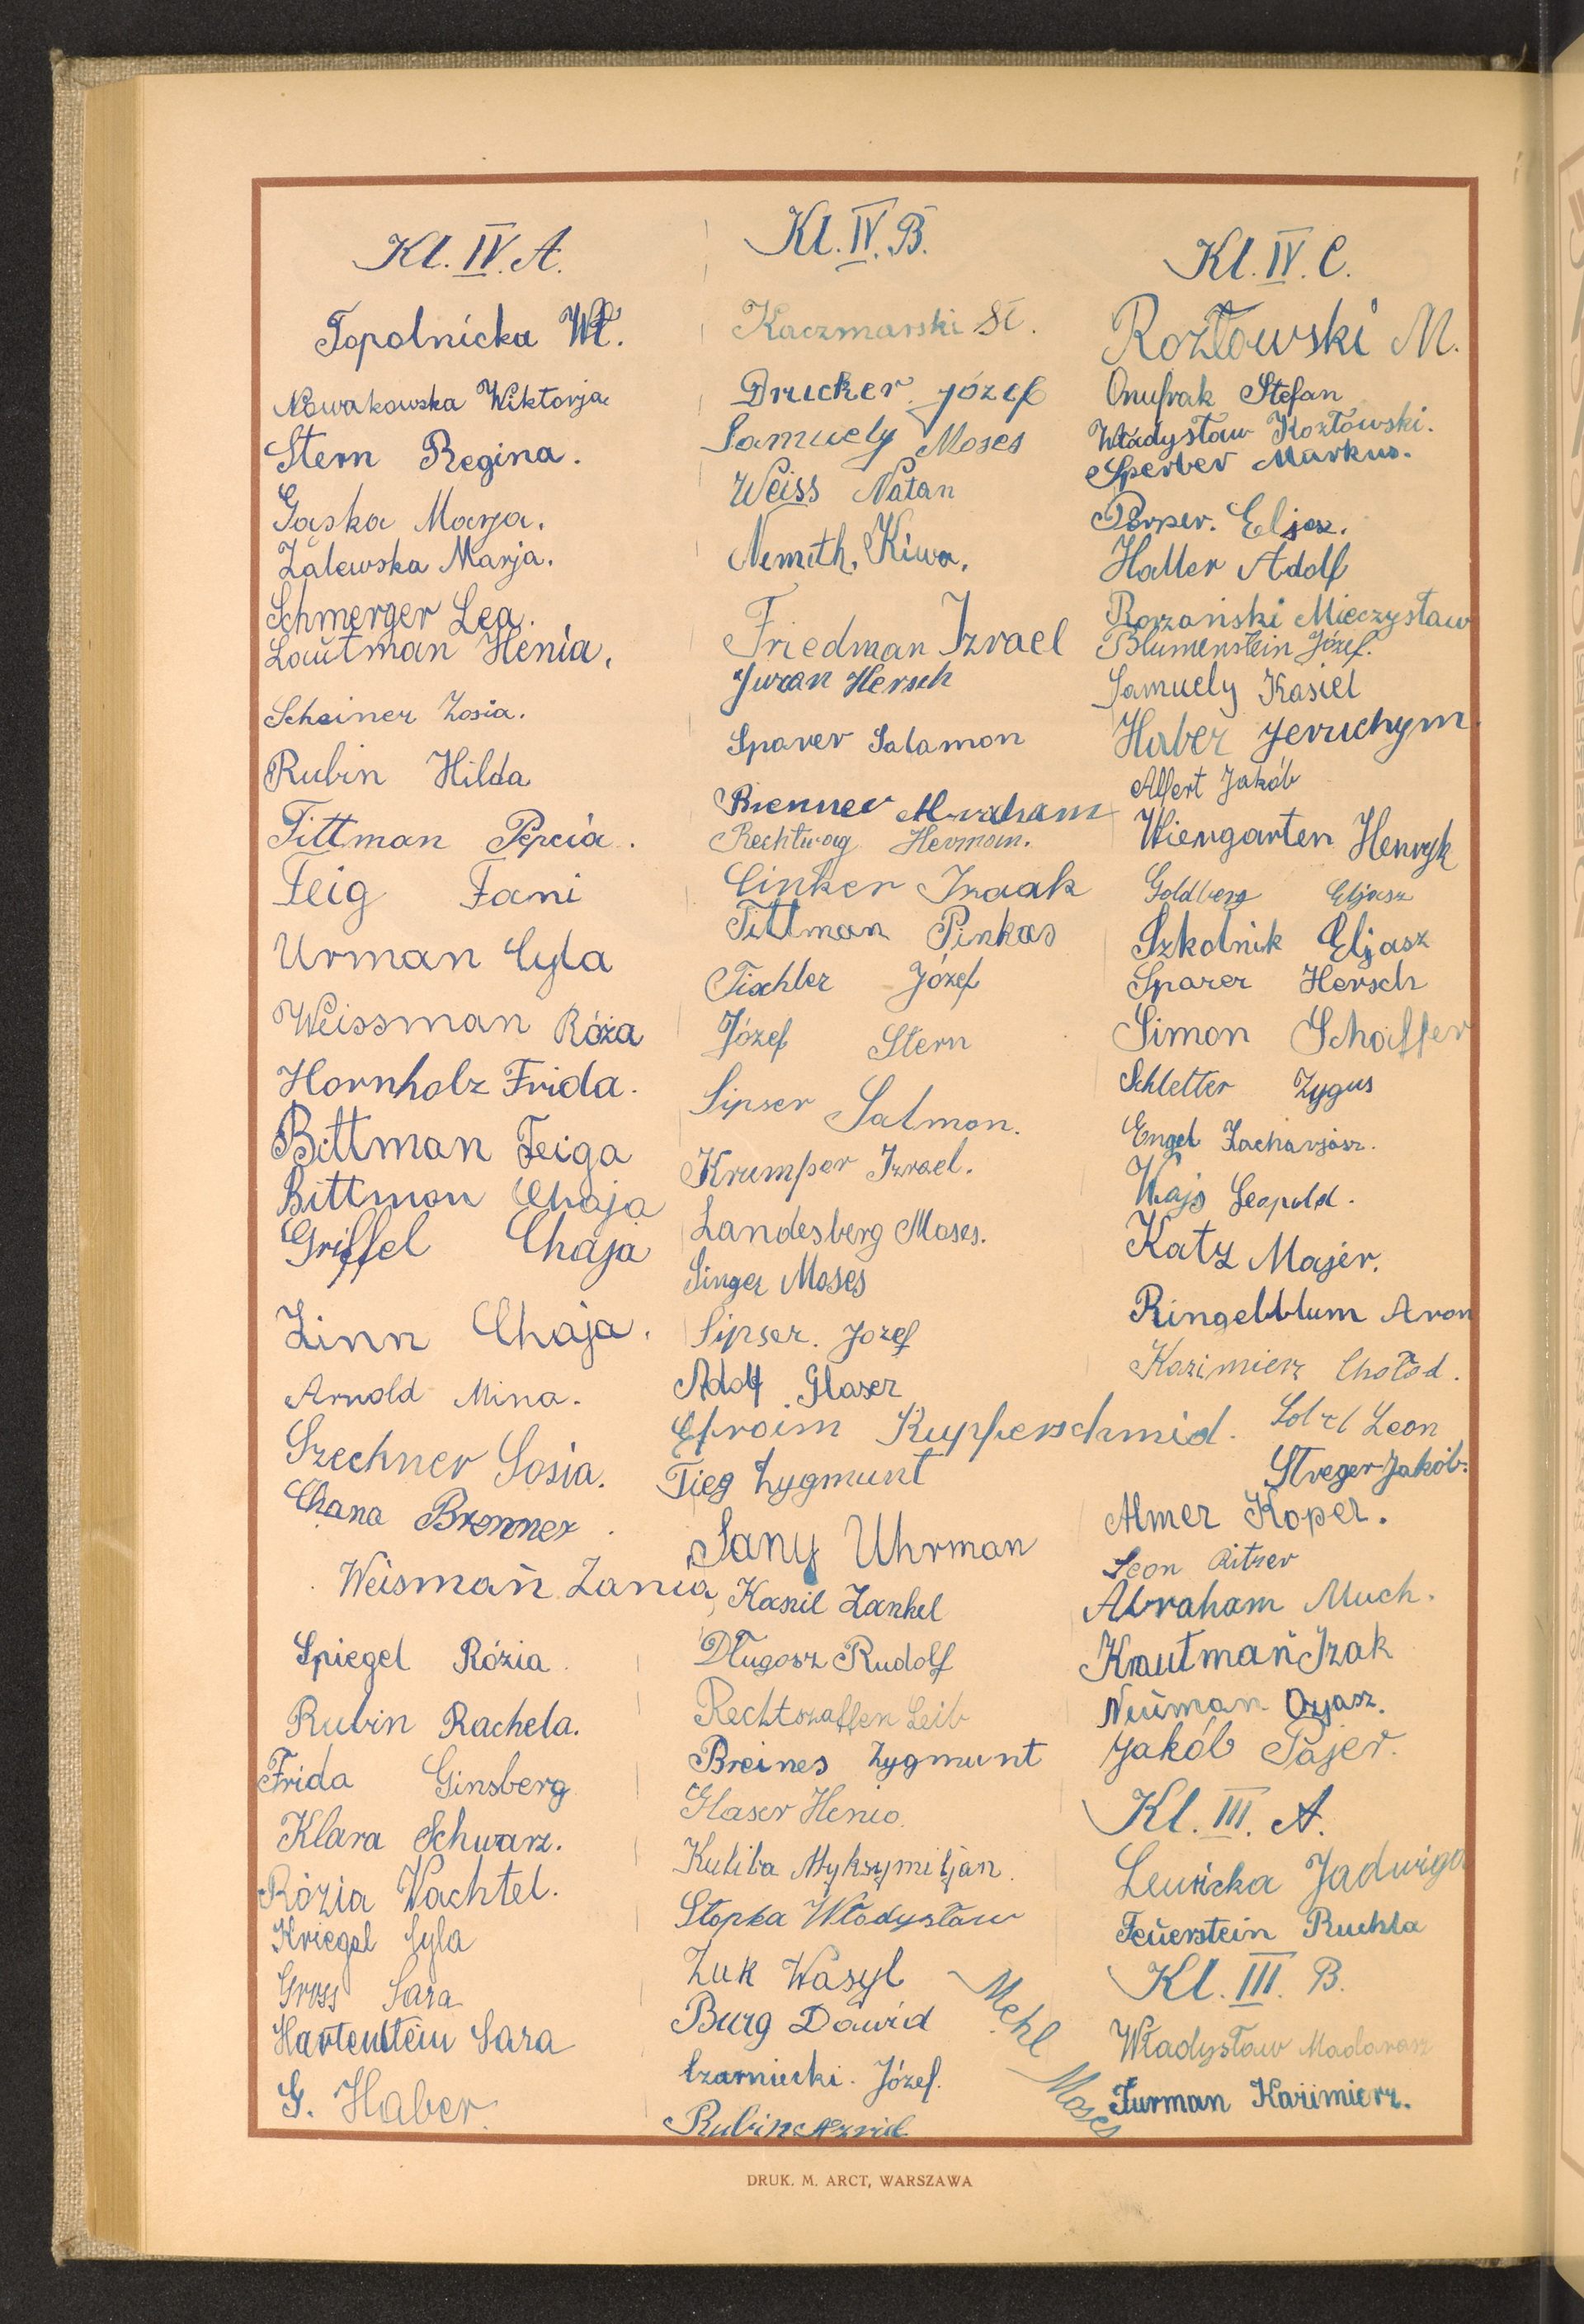 Kl. IV. A.
Topolnicka Wł.
Nowakowska Wiktorja
Stern Regina.
Gąska Marja.
Zalewska Marja.
Schmerger Lea.
Lautman Henia.
Scheiner Zosia.
Rubin Hilda
Tittman Pepcia.
Feig Fani
Urman Cyla
Weissman Róża
Hornholz Frida.
Bittman Feiga
Bittman Chaja
Griffel Chaja
Zinn Chaja.
Arnold Mina.
Szechner Sosia.
Chana Brenner.
Weisman Zania
Spiegel Rózia.
Rubin Rachela.
Frida Ginsberg
Klara Schwarz.
Rózia Wachtel.
Kriegel Cyla
Gross Sara
Hartenstein Sara
G. Haber.
Kl. IV. B.
Kaczmarski St.
Drucker Józef
Samuely Moses
Weiss Natan
Nemeth, Kiwa.
Friedman Izrael
Juran Hersch
Sparer Salamon
Brenner Abraham
Rechtwag Herman.
Cinker Izaak
Tittman Pinkas
Tischler Józef
Józef Stern
Sipser Salmon.
Krumper Izrael.
Landesberg Moses.
Singer Moses
Sipser. Jozef
Adolf Glaser
Efroim Kupferschmid.
Tieg Zygmunt
Sany Uhrman
Kasil Zankel
Długosz Rudolf
Rechtszaffen Leib
Breines Zygmunt
Glaser Henio.
Kuliba Myksymiljan.
Stopka Władysław
Żuk Wasyl
Burg Dawid
Czarniecki. Józef.
Rubin
Mehl Moses
Kl. IV. C.
Kozłowski M.
Onufrak Stefan
Władysław Kozłowski.
Sperber Markus.
Perper. Eljasz.
Haller Adolf
Rozański Mieczysław
Blumenstein Józef.
Samuely Kasiel
Haber Jeruchym.
Alfert Jakób
Wiengarten Henryk
Goldberg Eljasz
Szkolnik Eljasz
Sparer Hersch
Simon Schaffer
Schletter Zygus
Engel Zacharjasz.
Wajs Leopold.
Katz Majer.
Ringelblum Aron
Kazimierz Chołod.
Leon
Streger Jakób.
Almer Koper.
Leon Ritzer
Abraham Much.
Krautman Izak
Neuman Ozjasz.
Jakób Pajer.
Kl. III. A.
Lewicka Jadwiga
Feuerstein Ruchla
Kl. III. B.
Władysław Madarasz
Furman Kazimierz.
DRUK. M. ARCT, WARSZAWA